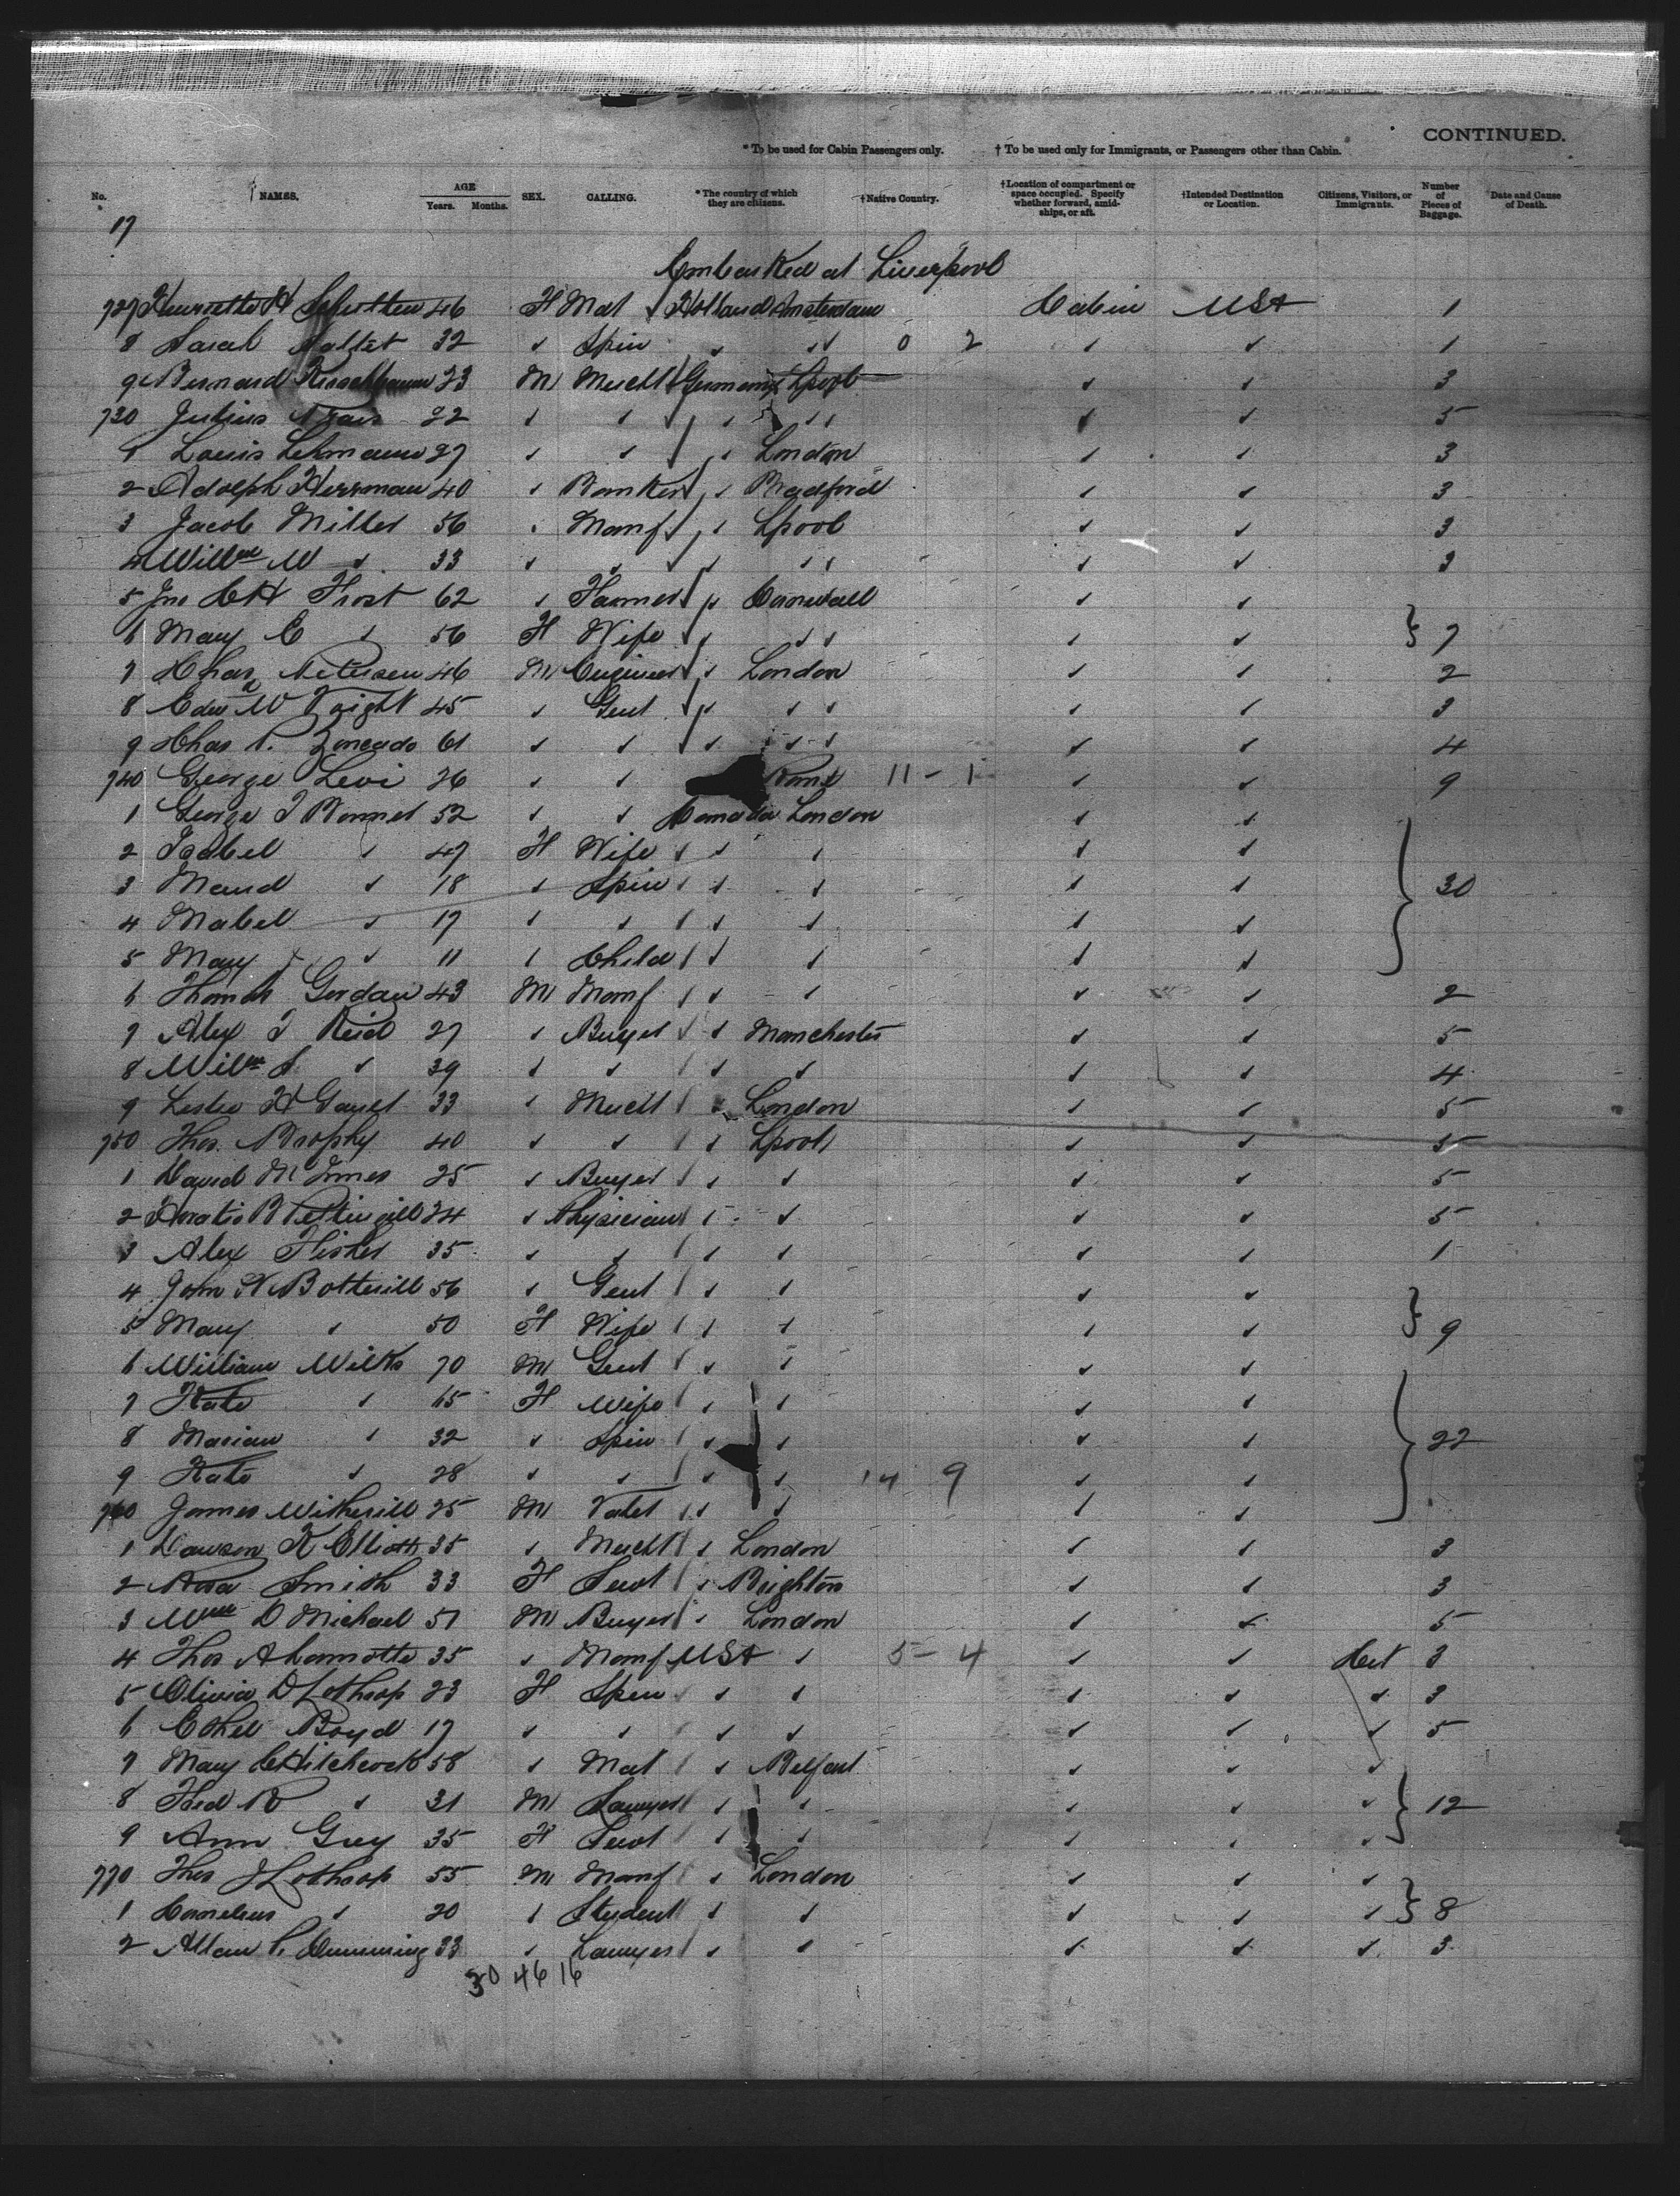 CONTINUED.
* To be used for Cabin Passengers only. † To be used only for Immigrants, or Passengers other than Cabin.
No. NAMES. AGE Years. Months. SEX. CALLING. * The country of which they are citizens. † Native Country. † Location of compartment or space occupied. Specify whether forward, amidships, or aft. † Intended Destination or Location. Citizens, Visitors, or Immigrants. Number of Pieces of Baggage. Date and Cause of Death.
17
Embarked at Liverpool
727 H 46 F Mat Holland Amsterdam Cabin USA 1
8 Sarah 32 " Spin " " " 0 2 " " 1
9 Bernard 23 M Mercht Germany Lpool " " 3
730 Julius 22 " " " " " " " 5
1 Louis Lehmann 27 " " " London " " 3
2 Adolph Herrman 40 " Banker " Bradford " " 3
3 Jacob Miller 56 " Manf " Lpool " " 3
4 Willm W " 33 " " " " " " " 3
5 Jno C H Frost 62 " Farmer " Cornwall " "
6 Mary E " 56 F Wife " " " " " } 7
7 Chas Petersen 46 M Engineer " London " " 2
8 Edwd W 45 " Gent " " " " " 3
9 Chas P. 61 " " " " " " " 4
740 George Levi 26 " " Rome 11 - 1 " " 9
1 George T Bonner 52 " " Canada London " "
2 Isabel " 47 F Wife " " " "
3 Maud " 18 " Spin " " " " } 30
4 Mabel " 17 " " " " " "
5 Mary " 11 " Child " " " "
6 Thomas Gordan 43 M Manf " " " " 2
7 Alex T Reid 27 " Buyer " Manchester " " 5
8 Wilm S " 39 " " " " " " 4
9 Leslie H 33 " Mercht " London " " 5
750 Thos. Brophy 40 " " " Lpool " " 5
1 David McInnes 25 " Buyer " " " " 5
2 Horatio B Pettingill 24 " Physician " " " " 5
3 Alex Fisher 35 " " " " " " 1
4 John H Botterill 56 " Gent " " " "
5 Mary " 50 F Wife " " " " } 9
6 William Wilks 70 M Gent " " " "
7 Kate " 65 F Wife " " " "
8 Marian " 32 " Spin " " " " } 22
9 Kate " 28 " " " " 14 9 " "
760 James Witherill 25 M Valet " " " "
1 Dawson K Elliott 35 " Mercht " London " " 3
2 Rosa Smith 33 F Servt " Brighton " " 3
3 Wm D Michael 51 M Buyer " London " " 5
4 Thos A 35 " Manf USA " 5 - 4 " " Cit 3
5 Olivia D Lothrop 23 F Spin " " " " " 3
6 Ethel Boyd 17 " " " " " " " 5
7 Mary C Hitchcock 58 " Mat " Belfast " " "
8 Fred R " 31 M Lawyer " " " " " } 12
9 Ann Grey 35 F Servt " " " " "
770 Thos J Lothrop 55 M Manf " London " " "
1 Cornelius " 20 " Student " " " " " } 8
2 Allan P. Cumming 33 " Lawyer " " " " " 3
30 46 16